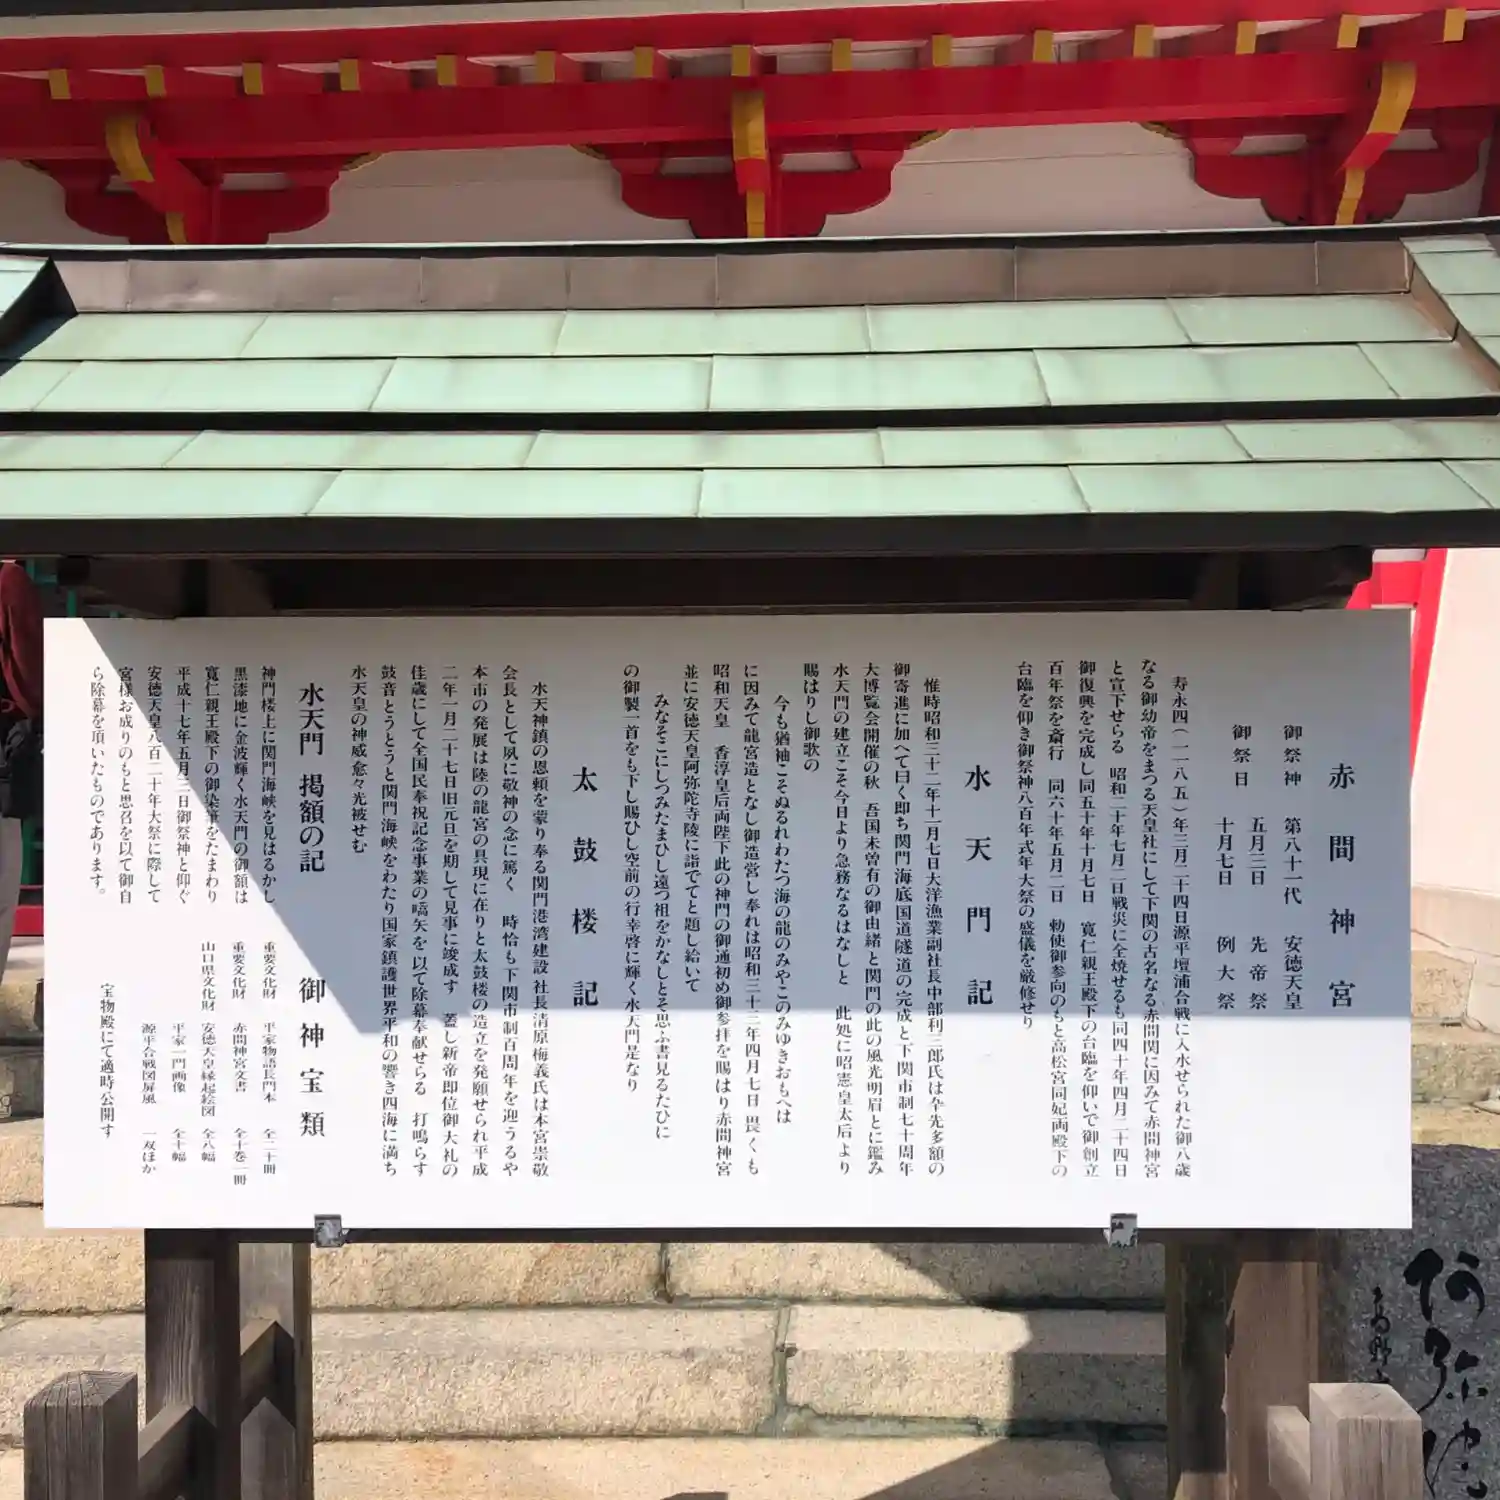 赤間神宮
御祭神　第八十一代　安徳天皇
御祭日　五月三日　先帝祭
十月七日　例大祭
寿永四(一一八五)年三月二十四日源平壇浦合戦に入水せられた御八歳
なる御幼帝をまつる天皇社にして下関の古名なる赤間関に因みて赤間神宮
と宣下せらる　昭和二十年七月二日戦災に全焼せるも同四十年四月二十四日
御復興を完成し同五十年十月七日　寛仁親王殿下の台臨を仰いで御創立
百年祭を斎行　同六十年五月二日　勅使御参向のもと高松宮同妃両殿下の
台臨を仰き御祭神八百年式年大祭の盛儀を厳修せり
水天門記
惟時昭和三十二年十一月七日大洋漁業副社長中部利三郎氏は卒先多額の
御寄進に加へて曰く即ち関門海底国道隧道の完成と下関市制七十周年
大博覧会開催の秋　吾国未曽有の御由緒と関門の此の風光明眉とに鑑み
水天門の建立こそ今日より急務なるはなしと　此処に昭憲皇太后より
賜はりし御歌の
今も猶袖こそぬるれわたつ海の龍のみやこのみゆきおもへは
に因みて龍宮造となし御造営し奉れは昭和三十三年四月七日畏くも
昭和天皇　香淳皇后両陛下此の神門の御通初め御参拝を賜はり赤間神宮
並に安徳天皇阿弥陀寺陵に詣でてと題し給いて
みなそこにしつみたまひし遠つ祖をかなしとそ思ふ書見るたひに
の御製一首をも下し賜ひし空前の行幸啓に輝く水天門是なり
太鼓楼記
水天神鎮の恩頼を蒙り奉る関門港湾建設社長清原梅義氏は本宮崇敬
会長として夙に敬神の念に篤く　時恰も下関市制百周年を迎うるや
本市の発展は陸の龍宮の具現に在りと太鼓楼の造立を発願せられ平成
二年一月二十七日旧元旦を期して見事に竣成す　蓋し新帝即位御大礼の
佳歳にして全国民奉祝記念事業の嚆矢を以て除幕奉献せらる　打鳴らす
鼓音とうとうと関門海峡をわたり国家鎮護世界平和の響き四海に満ち
水天皇の神威愈々光被せむ
水天門　掲額の記
神門楼上に関門海峡を見はるかし
黒漆地に金波輝く水天門の御額は
寛仁親王殿下の御染筆をたまわり
平成十七年五月三日御祭神と仰ぐ
安徳天皇八百二十年大祭に際して
宮様お成りのもと思召を以て御自
ら除幕を頂いたものであります。
御神宝類
重要文化財　平家物語長門本　全二十冊
重要文化財　赤間神宮文書　全十巻一冊
山口県文化財　安徳天皇縁起絵図　全八幅
平家一門画像　全十幅
源平合戦図屏風　一双ほか
宝物殿にて適時公開す
阿弥陀